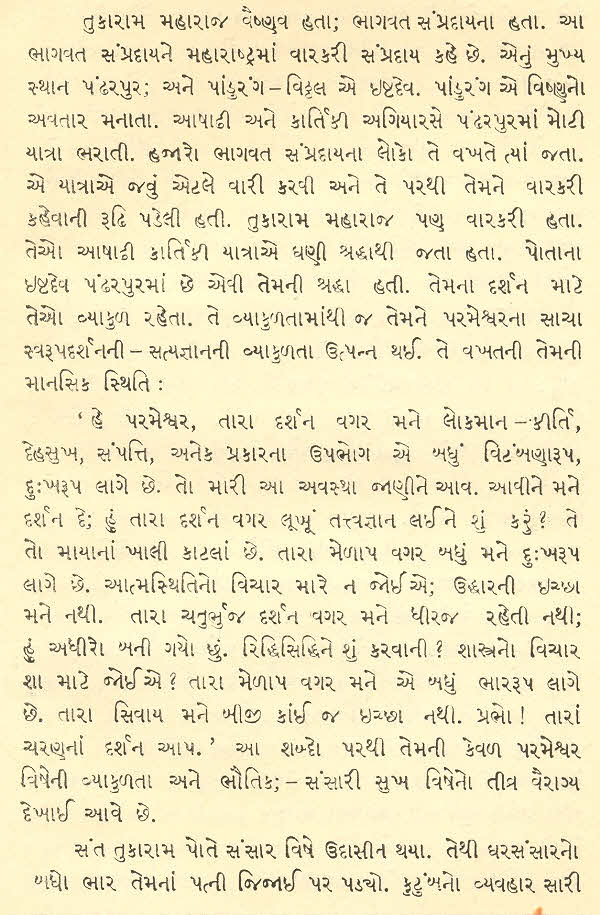 તુકારામ મહારાજ વૈષ્ણવ હતા; ભાગવત સંપ્રદાયના હતા. આ
ભાગવત સંપ્રદાયને મહારાષ્ટ્રમાં વારકરી સંપ્રદાય કહે છે. એનું મુખ્ય
સ્થાન પંઢરપુર; અને પાંડુરંગ – વિઠ્ઠલ એ ઇષ્ટદેવ. પાંડુરંગ એ વિષ્ણુનો
અવતાર મનાતા. આષાઢી અને કાર્તિકી અગિયારસે પંઢરપુરમાં મોટી
યાત્રા ભરાતી. હજારો ભાગવત સંપ્રદાયના લોકો તે વખતે ત્યાં જતા.
એ યાત્રાએ જવું એટલે વારી કરવી અને તે પરથી તેમને વારકરી
કહેવાની રૂઢિ પડેલી હતી. તુકારામ મહારાજ પણ વારકરી હતા.
તેઓ આષાઢી કાર્તિકી યાત્રાએ ઘણી શ્રદ્ધાથી જતા હતા. પોતાના
ઇષ્ટદેવ પંઢરપુરમાં છે એવી તેમની શ્રદ્ધા હતી. તેમના દર્શન માટે
તેઓ વ્યાકુળ રહેતા. તે વ્યાકુળતામાંથી જ તેમને પરમેશ્વરના સાચા
સ્વરૂપદર્શનની – સત્યજ્ઞાનની વ્યાકુળતા ઉત્પન્ન થઈ. તે વખતની તેમની
માનસિક સ્થિતિ :
‘ હે પરમેશ્વર, તારા દર્શન વગર મને લોકમાન – કીર્તિ,
દેહસુખ, સંપત્તિ, અનેક પ્રકારના ઉપભોગ એ બધું વિટંબણારૂપ,
દુઃખરૂપ લાગે છે. તો મારી આ અવસ્થા જાણીને આવ. આવીને મને
દર્શન દે; હું તારા દર્શન વગર લૂખું તત્ત્વજ્ઞાન લઈને શું કરું? તે
તો માયાનાં ખાલી કાટલાં છે. તારા મેળાપ વગર બધું મને દુઃખરૂપ
લાગે છે. આત્મસ્થિતિનો વિચાર મારે ન જોઈએ; ઉદ્ધારની ઇચ્છા
મને નથી. તારા ચતુર્ભુજ દર્શન વગર મને ધીરજ રહેતી નથી;
હું અધીરો બની ગયો છું. રિદ્ધિસિદ્ધિને શું કરવાની? શાસ્ત્રનો વિચાર
શા માટે જોઈએ? તારા મેળાપ વગર મને એ બધું ભારરૂપ લાગે
છે. તારા સિવાય મને બીજી કાંઈ જ ઇચ્છા નથી. પ્રભો! તારાં
ચરણનાં દર્શન આપ.’ આ શબ્દો પરથી તેમની કેવળ પરમેશ્વર
વિષેની વ્યાકુળતા અને ભૌતિક; – સંસારી સુખ વિષેનો તીવ્ર વૈરાગ્ય
દેખાઈ આવે છે.
સંત તુકારામ પોતે સંસાર વિષે ઉદાસીન થયા. તેથી ઘરસંસારનો
બધો ભાર તેમનાં પત્ની જિજાઈ પર પડ્યો. કુટુંબનો વ્યવહાર સારી